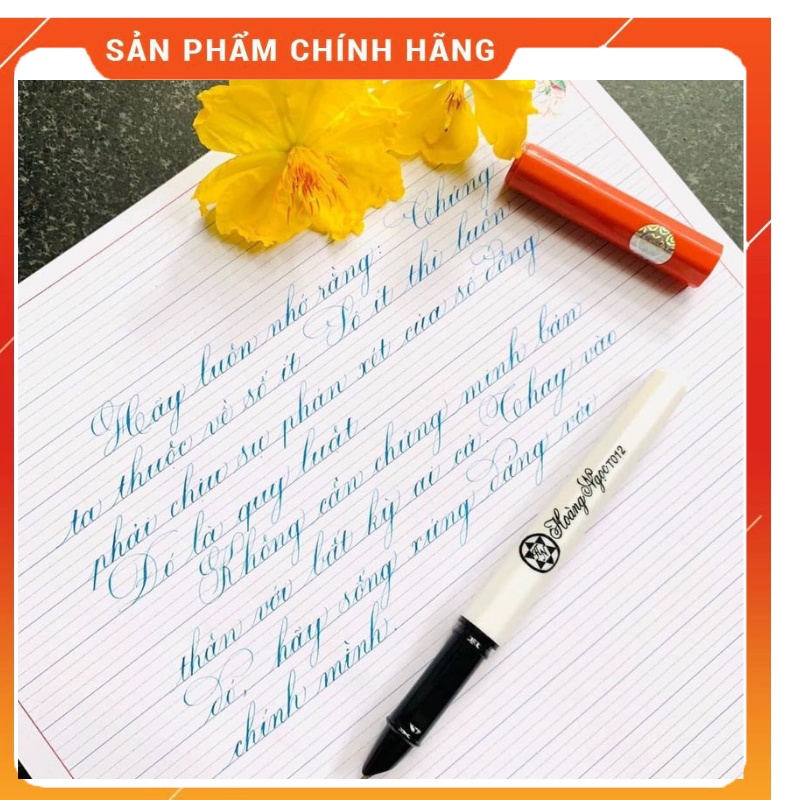 SẢN PHẨM CHÍNH HÃNG
Hãy luôn nhớ rằng: Chúng
ta thuộc về số ít. Số ít thì luôn
phải chịu sự phán xét của số đông
Đó là quy luật.
Không cần chứng minh bản
thân với bất kỳ ai cả. Thay vào
đó, hãy sống xứng đáng với
chính mình.
Hoàng Ngọc T012